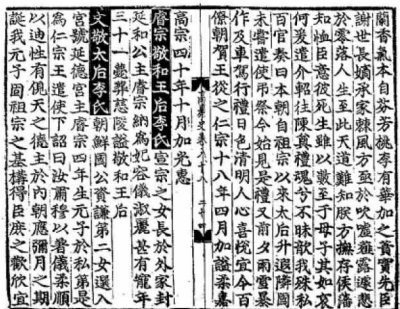 蘭香氣本自芬芳桃李有華加之蕡實先臣
謝世長嫡承家棘風方至於吹噓薤露遽悲
於零落人生至此天道難知朕方撫存侯藩
知恤臣意彼死生雖以數至子母子其如哀
何爰遣介軺往陳奠禮魂兮不昧歆我殊私
百官奏曰本朝自祖宗以來太后升遐隣國
未嘗遣使弔祭今始見是禮又前夕雨雪暴
作及車駕行禮日色清明人心喜悅宜令百
僚朝賀王從之仁宗十八年四月加謚柔嘉
高宗四十年十月加光惠
睿宗敬和王后李氏宣宗之女長於外家封
延和公主睿宗納爲妃容儀淑麗甚有寵年
三十一薨葬慈陵謚敬和王后
文敬太后李氏朝鮮國公資謙第二女選入
宮號延德宮主睿宗四年生元子於私第是
爲仁宗王遣使下詔曰汝肅穆以着儀柔順
以迪性有俔天之德主於內朝應彌月之期
誕我元子周祖宗之基構得臣庶之歡欣宜